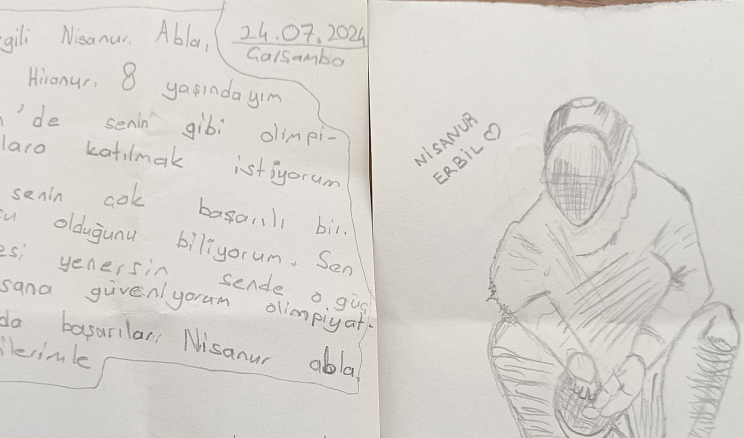 gili Nisanur Abla, 24.07.2024
Çarşamba
Hiranur. 8 yaşındayım
'de senin gibi olimpi-
lara katılmak istiyorum
senin çok başarılı bir.
cu olduğunu biliyorum. Sen
esi yenersin sende o güç
sana güveniyorum olimpiyat-
da başarılar Nisanur abla,
ilerimle
NİSANUR
ERBİL